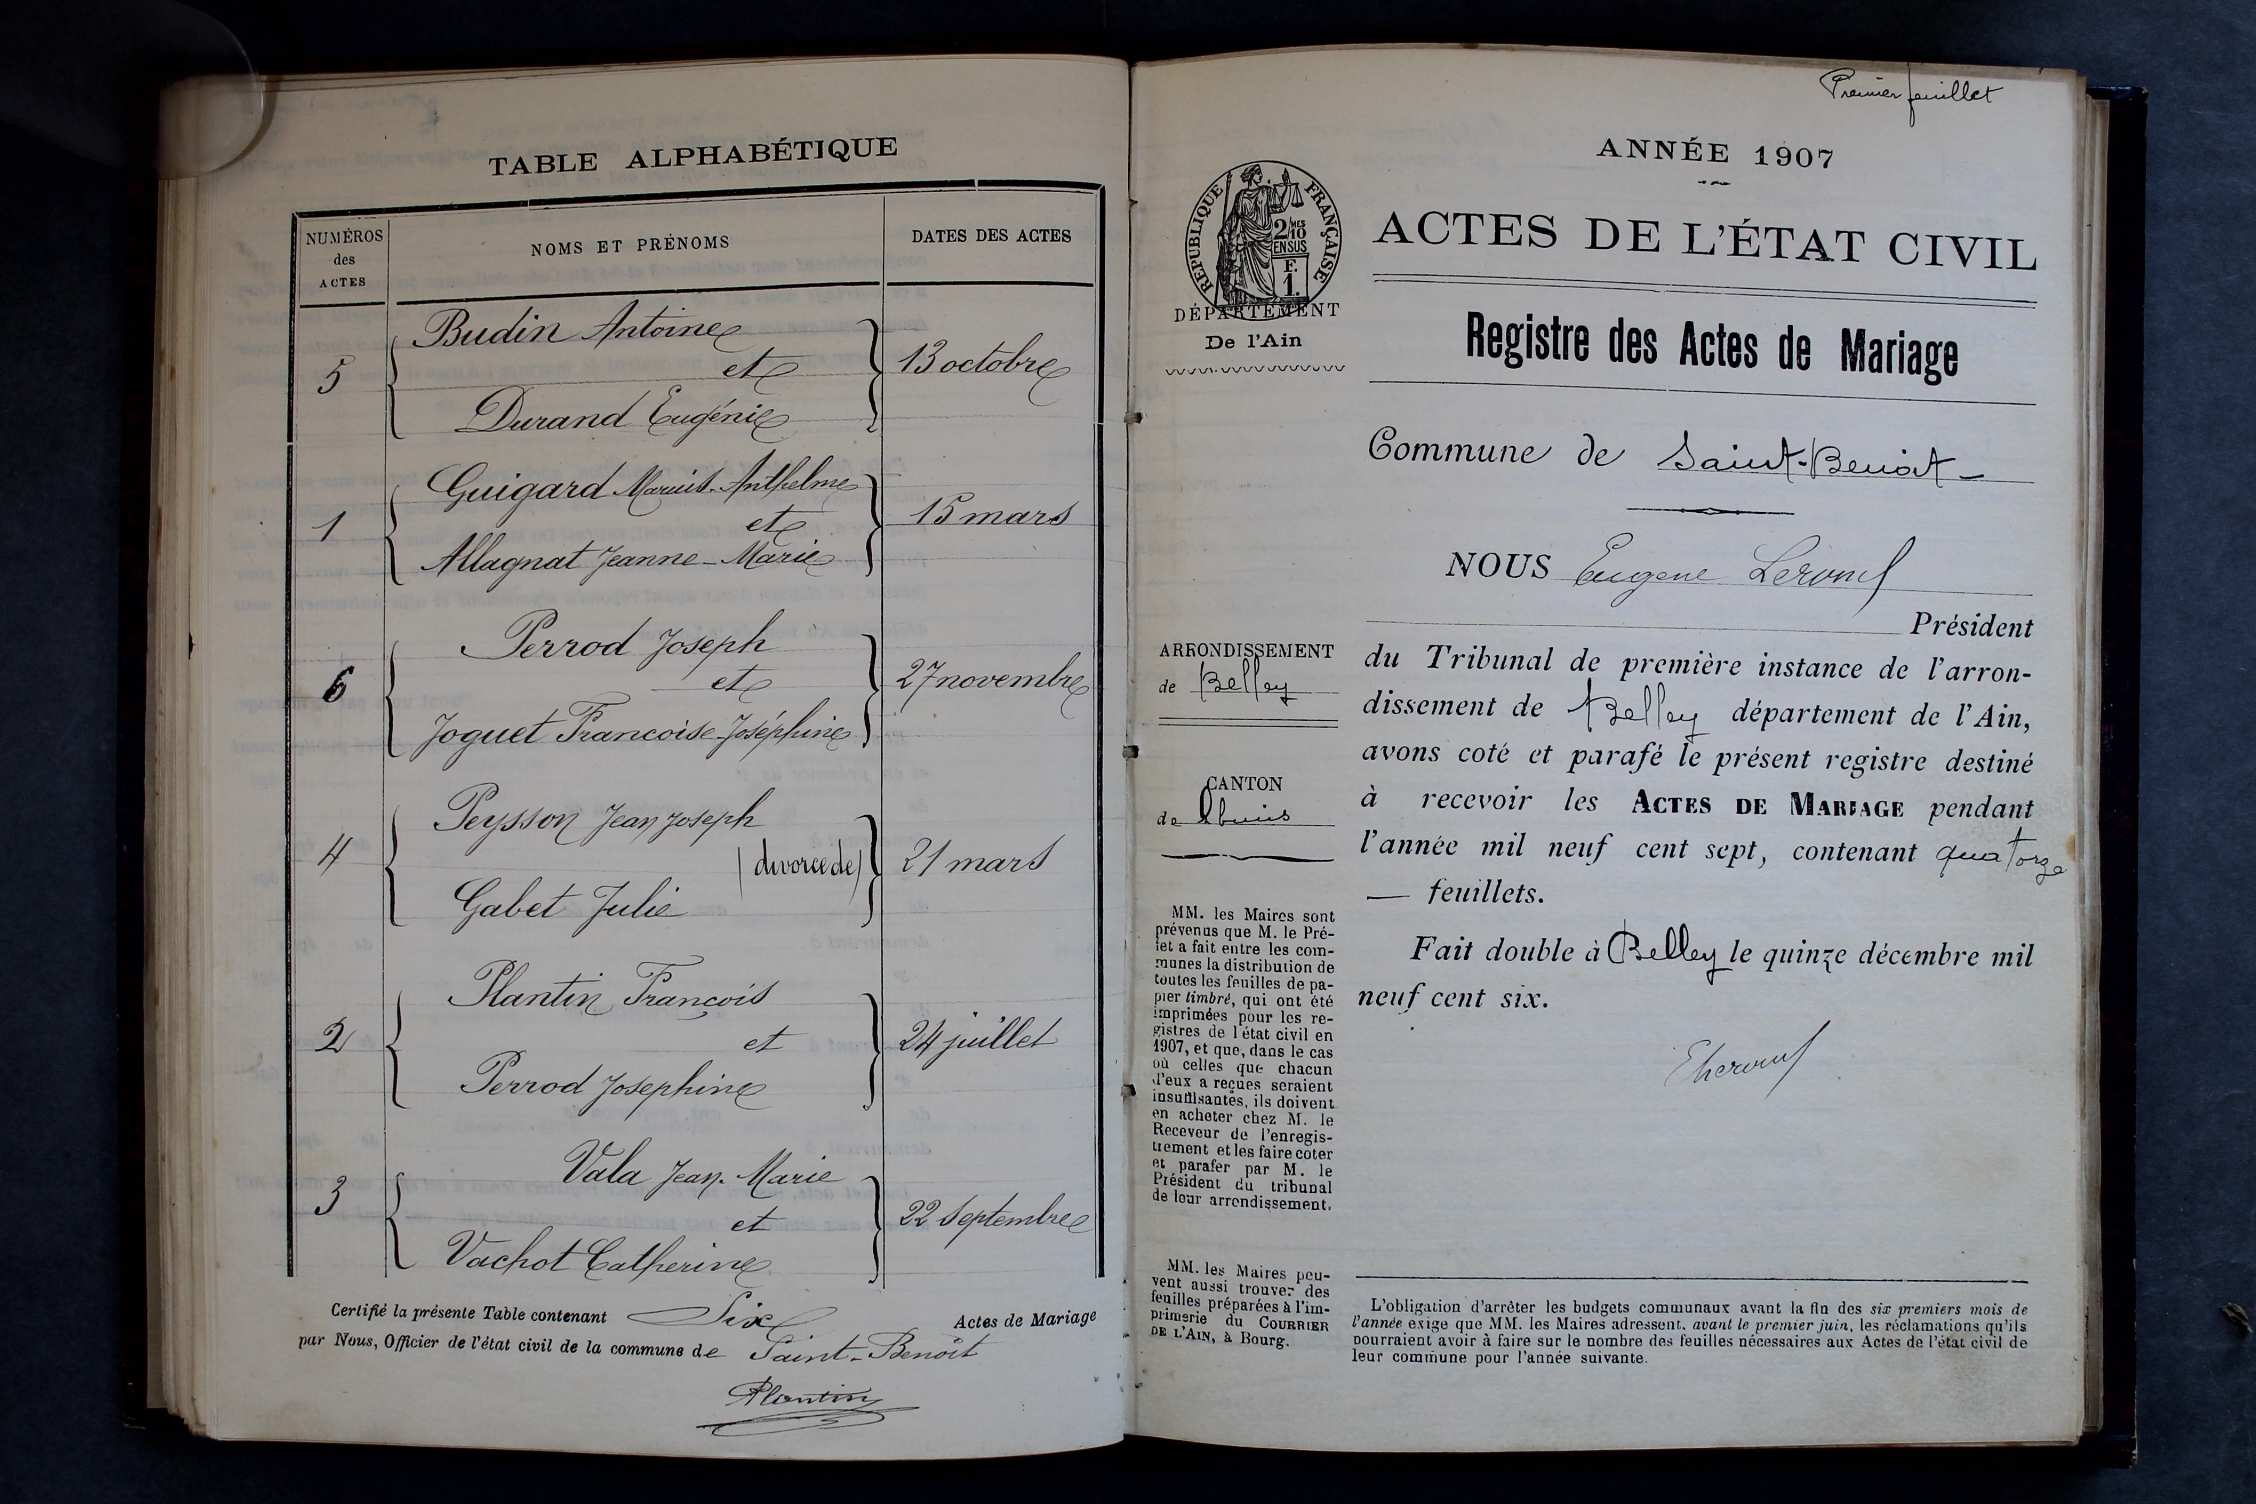 TABLE ALPHABÉTIQUE
NUMÉROS
des
ACTES
NOMS ET PRÉNOMS
DATES DES ACTES
5
Budin Antoine
et
Durand Eugénie
13 octobre
1
Guigard Marius-Anthelme
et
Allagnat Jeanne-Marie
15 mars
6
Perrod Joseph
et
Joguet Francoise-Joséphine
27 novembre
4
Peysson Jean Joseph
(divorce de)
Gabet Julie
21 mars
2
Plantin François
et
Perrod Josephine
24 juillet
3
Vala Jean-Marie
et
Vachot Catherine
22 Septembre
Certifié la présente Table contenant Six Actes de Mariage
par Nous, Officier de l'état civil de la commune de Saint-Benoît
Plantin
Premier feuillet
ANNÉE 1907
RÉPUBLIQUE FRANÇAISE
2/10 MES
EN SUS
F.
1.
DÉPARTEMENT
De l'Ain
ACTES DE L'ÉTAT CIVIL
Registre des Actes de Mariage
Commune de Saint-Benoit
NOUS Eugene
Président
du Tribunal de première instance de l'arron-
dissement de Belley département de l'Ain,
avons coté et parafé le présent registre destiné
à recevoir les ACTES DE MARIAGE pendant
l'année mil neuf cent sept, contenant quatorze
— feuillets.
Fait double à Belley le quinze décembre mil
neuf cent six.
ARRONDISSEMENT
de Belley
CANTON
de Lhuis
MM. les Maires sont
prévenus que M. le Pré-
fet a fait entre les com-
munes la distribution de
toutes les feuilles de pa-
pier timbré, qui ont été
imprimées pour les re-
gistres de l'état civil en
1907, et que, dans le cas
où celles que chacun
d'eux a reçues seraient
insuffisantes, ils doivent
en acheter chez M. le
Receveur de l'enregis-
trement et les faire coter
et parafer par M. le
Président du tribunal
de leur arrondissement.
MM. les Maires peu-
vent aussi trouver des
feuilles préparées à l'im-
primerie du COURRIER
DE L'AIN, à Bourg.
L'obligation d'arrêter les budgets communaux avant la fin des six premiers mois de
l'année exige que MM. les Maires adressent, avant le premier juin, les réclamations qu'ils
pourraient avoir à faire sur le nombre des feuilles nécessaires aux Actes de l'état civil de
leur commune pour l'année suivante.